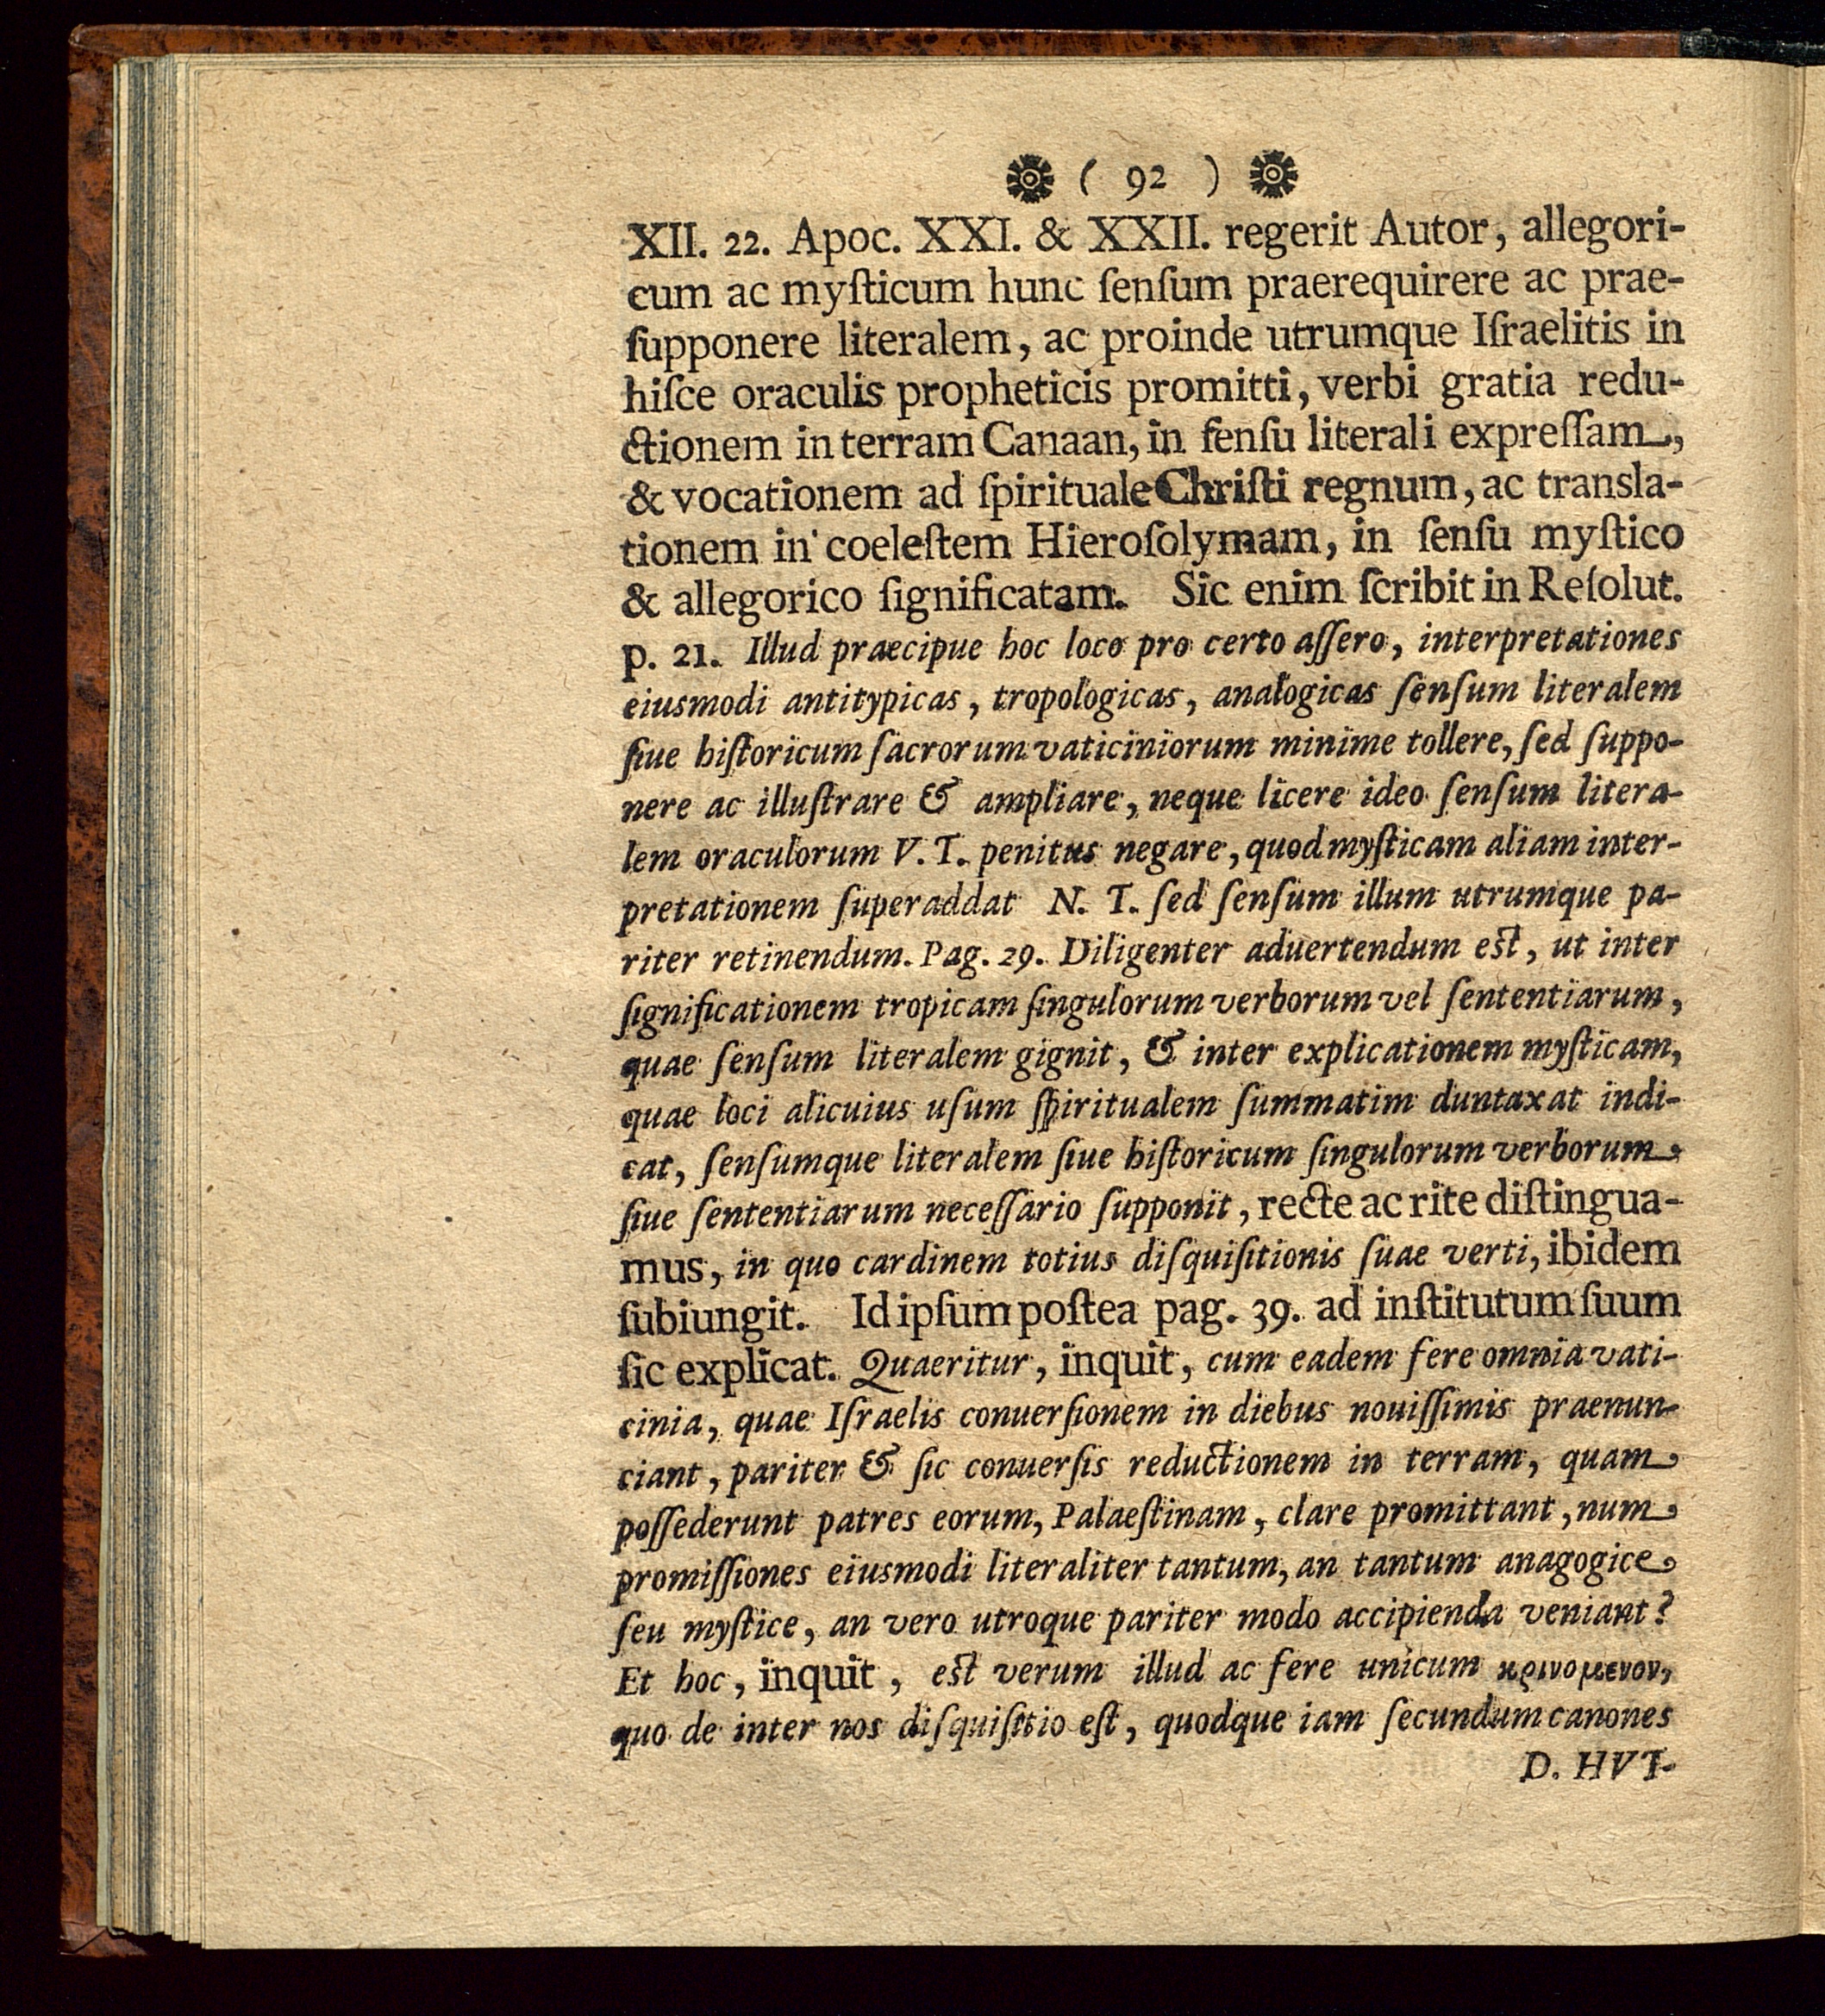 ( 92 )
XII. 22. Apoc. XXI. & XXII. regerit Autor, allegori-
cum ac myſticum hunc ſenſum praerequirere ac prae-
ſupponere literalem, ac proinde utrumque Iſraelitis in
hiſce oraculis propheticis promitti, verbi gratia redu-
ctionem in terram Canaan, in ſenſu literali expreſſam,
& vocationem ad ſpirituale Chriſti regnum, ac transla-
tionem in coeleſtem Hieroſolymam, in ſenſu myſtico
& allegorico ſignificatam. Sic enim ſcribit in Reſolut.
p. 21. Illud praecipue hoc loco pro certo aſſero, interpretationes
eiusmodi antitypicas, tropologicas, analogicas ſenſum literalem
ſiue hiſtoricum ſacrorum vaticiniorum minime tollere, ſed ſuppo-
nere ac illuſtrare & ampliare, neque licere ideo ſenſum litera-
lem oraculorum V. T. penitus negare, quod myſticam aliam inter-
pretationem ſuperaddat N. T. ſed ſenſum illum utrumque pa-
riter retinendum. Pag. 29. Diligenter aduertendum eſt, ut inter
ſignificationem tropicam ſingulorum verborum vel ſententiarum,
quae ſenſum literalem gignit, & inter explicationem myſticam,
quae loci alicuius uſum ſpiritualem ſummatim duntaxat indi-
cat, ſenſumque literalem ſiue hiſtoricum ſingulorum verborum
ſiue ſententiarum neceſſario ſupponit, recte ac rite diſtingua-
mus, in quo cardinem totius diſquiſitionis ſuae verti, ibidem
ſubiungit. Id ipſum poſtea pag. 39. ad inſtitutum ſuum
ſic explicat. Quaeritur, inquit, cum eadem fere omnia vati-
cinia, quae Iſraelis conuerſionem in diebus nouiſſimis praenun-
ciant, pariter & ſic conuerſis reductionem in terram, quam
poſſederunt patres eorum, Palaeſtinam, clare promittant, num
promiſſiones eiusmodi literaliter tantum, an tantum anagogice
ſeu myſtice, an vero utroque pariter modo accipienda veniant?
Et hoc, inquit, eſt verum illud ac fere unicum κρινομενον,
quo de inter nos diſquiſitio eſt, quodque iam ſecundum canones
D. HVT-